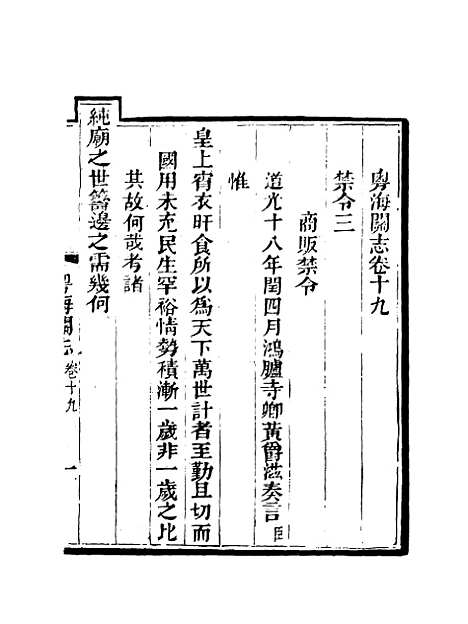 粤海關志卷十九
禁令三
商販禁令
道光十八年閏四月鴻臚寺卿黃爵滋奏言臣
惟
皇上宵衣旰食所以爲天下萬世計者至勤且切而
國用未充民生罕裕情勢積漸一歲非一歲之比
其故何哉考諸
純廟之世籌邊之需幾何
粤海關志 卷十九 一